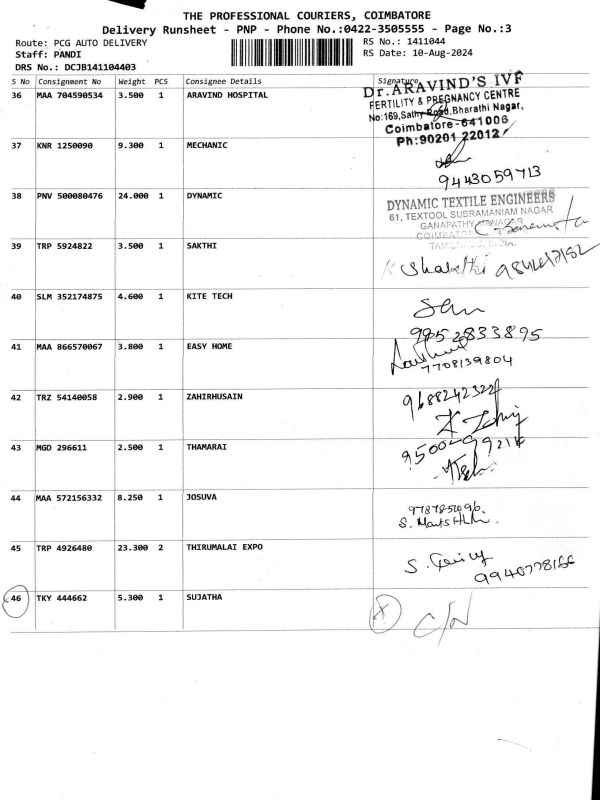 THE PROFESSIONAL COURIERS, COIMBATORE
Delivery Runsheet - PNP - Phone No.:0422-3505555 - Page No.:3
Route: PCG AUTO DELIVERY
RS No.: 1411044
Staff: PANDI
RS Date: 10-Aug-2024
DRS No.: DCJB141104403
S No Consignment No Weight PCS Consignee Details Signature
36 MAA 704590534 3.500 1 ARAVIND HOSPITAL
Dr.ARAVIND'S IVF
FERTILITY & PREGNANCY CENTRE
No:169,Sathy Road,Bharathi Nagar,
Coimbatore-641006
Ph:90201 22012
37 KNR 1250090 9.300 1 MECHANIC
9443059713
38 PNV 500080476 24.000 1 DYNAMIC
DYNAMIC TEXTILE ENGINEERS
61, TEXTOOL SUBRAMANIAM NAGAR
GANAPATHY
COIMBATORE
39 TRP 5924822 3.500 1 SAKTHI
40 SLM 352174875 4.600 1 KITE TECH
9952833895
41 MAA 866570067 3.800 1 EASY HOME
7708139804
42 TRZ 54140058 2.900 1 ZAHIRHUSAIN
43 MGD 296611 2.500 1 THAMARAI
44 MAA 572156332 8.250 1 JOSUVA
45 TRP 4926480 23.300 2 THIRUMALAI EXPO
46 TKY 444662 5.300 1 SUJATHA